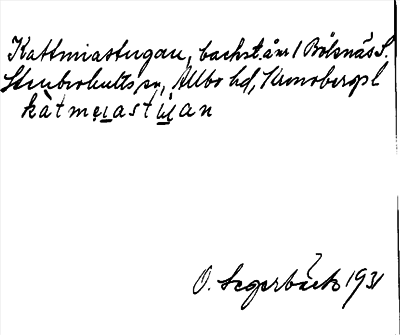 Kattmiastugan, backst. å nr 1 Bölsnäs S.
Stenbrohults sn, Allbo hd, Kronobergs l
kàtmeiastùgan
O. Segerbäck 1931